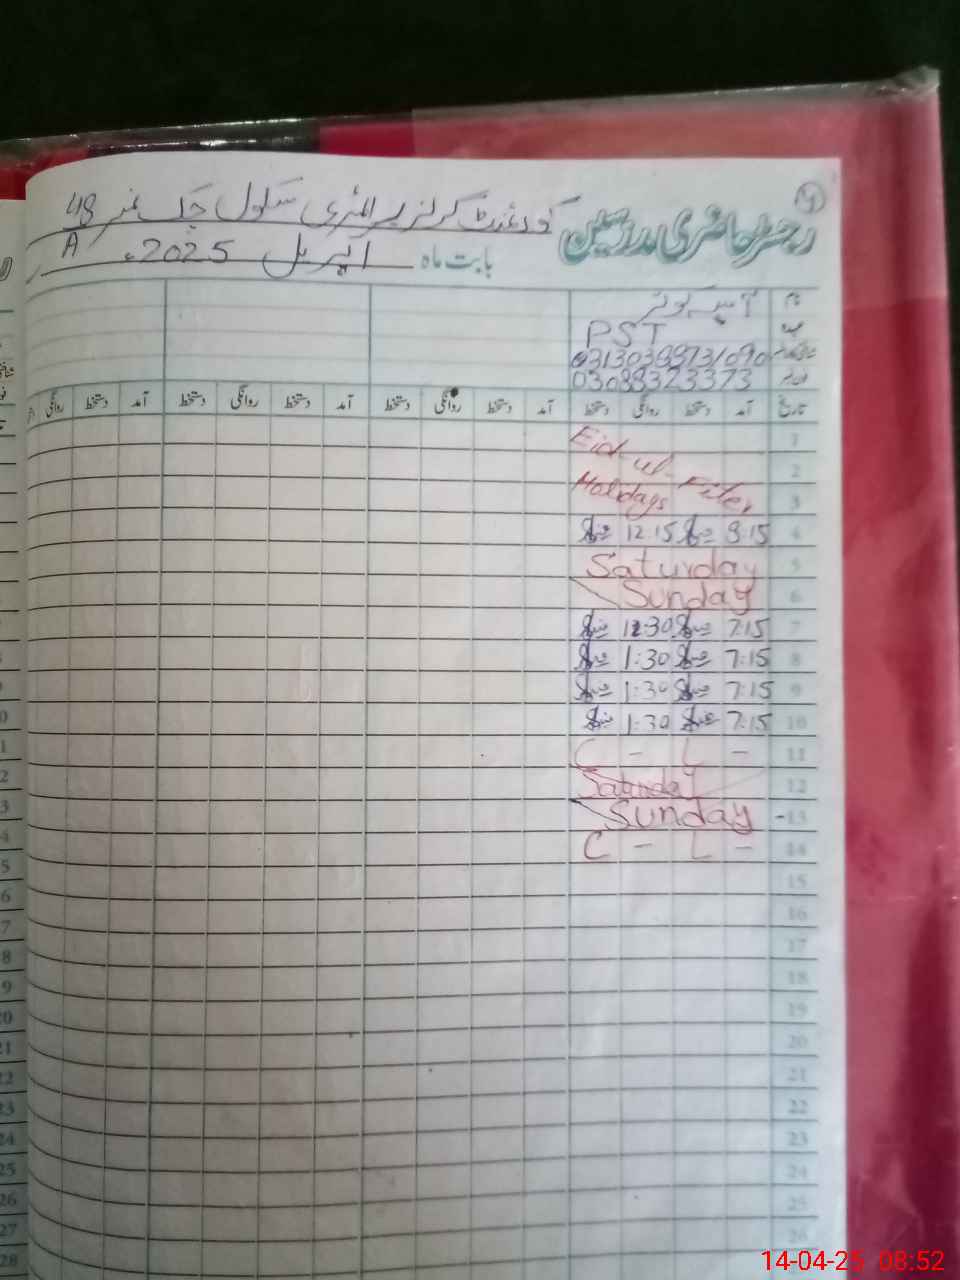 رجسٹر حاضری مدرسین گورنمنٹ گرلز پرائمری سکول چک نمبر 48
بابت ماہ اپریل 2025ء A
نام
عہدہ PST
فون نمبر 03088323373
تاریخ آمد دستخط روانگی دستخط آمد دستخط روانگی دستخط آمد دستخط روانگی دستخط آمد دستخط روانگی
1 Eid-ul-Fiter
2
3 Holidays
4 9:15 12:15
5 Saturday
6 Sunday
7 7:15 12:30
8 7:15 1:30
9 7:15 1:30
10 7:15 1:30
11 C - L -
12 Saturday
13 Sunday
14 C - L -
15
16
17
18
19
20
21
22
23
24
25
26
14-04-25 08:52